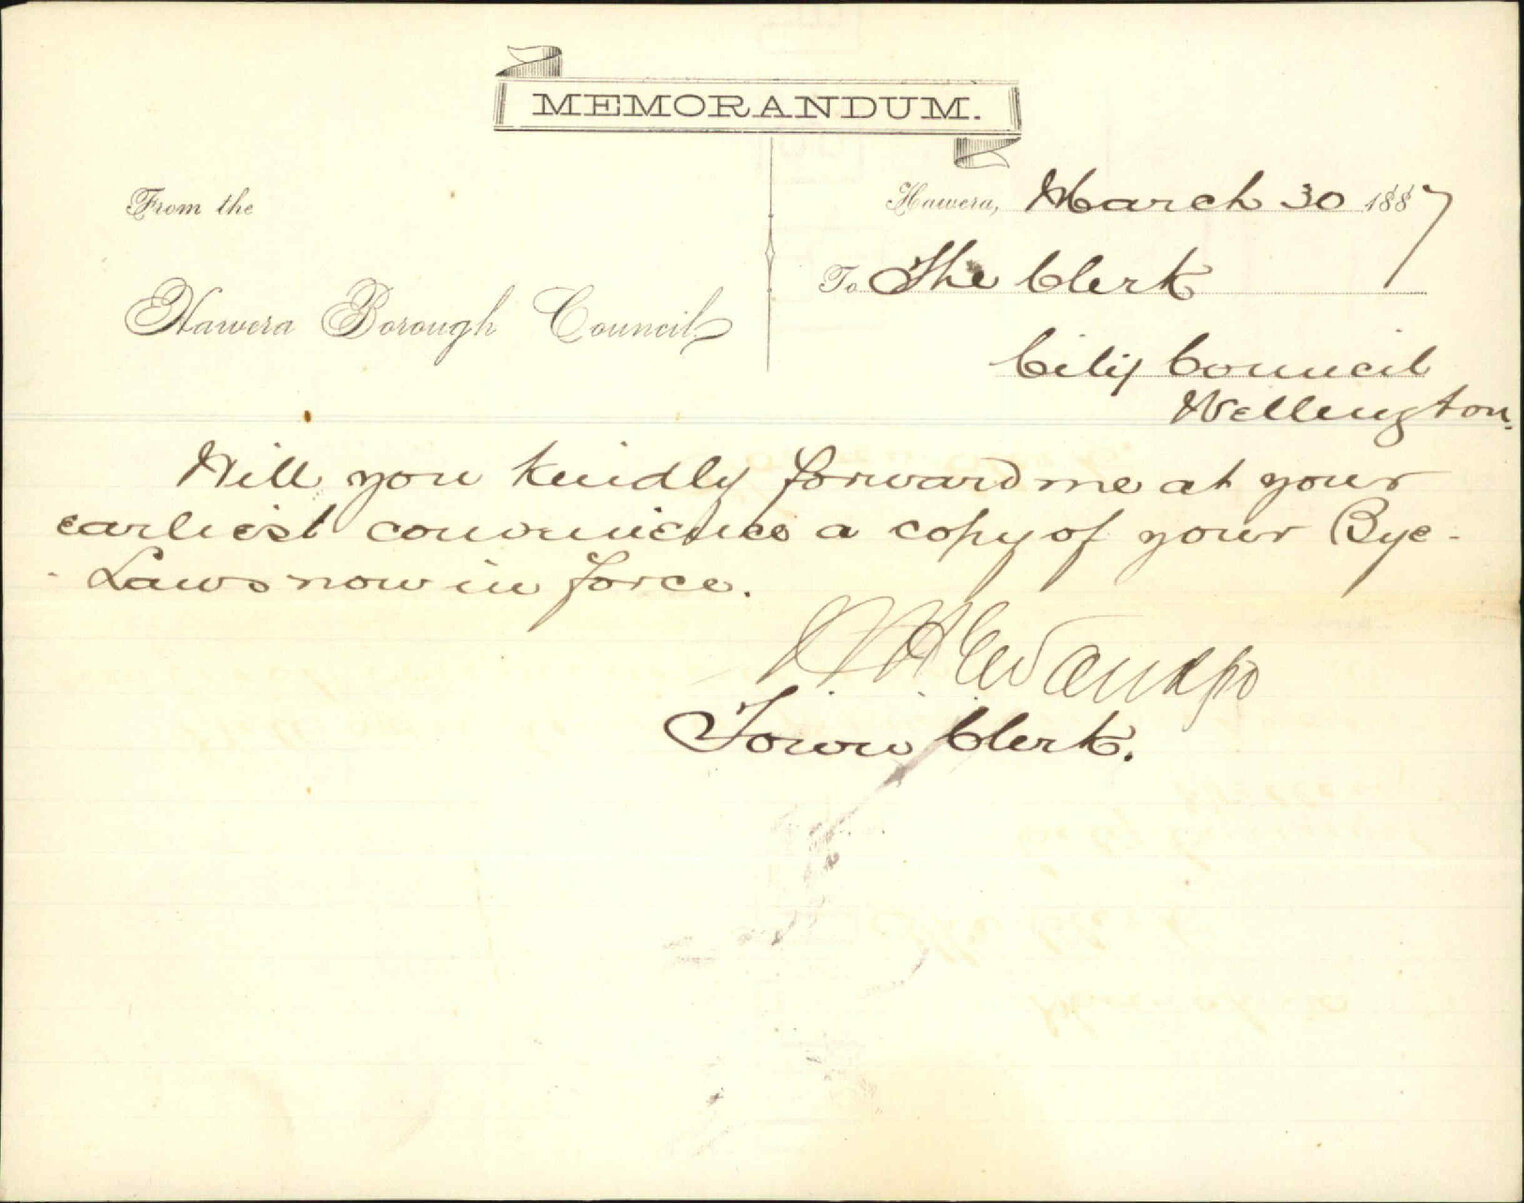 MEMORANDUM.
From the
Hawera Borough Council
Hawera, March 30 1887
To The Clerk
City Council
Wellington.
Will you kindly forward me at your
earliest convenience a copy of your Bye-
- Laws now in force.
Town Clerk.